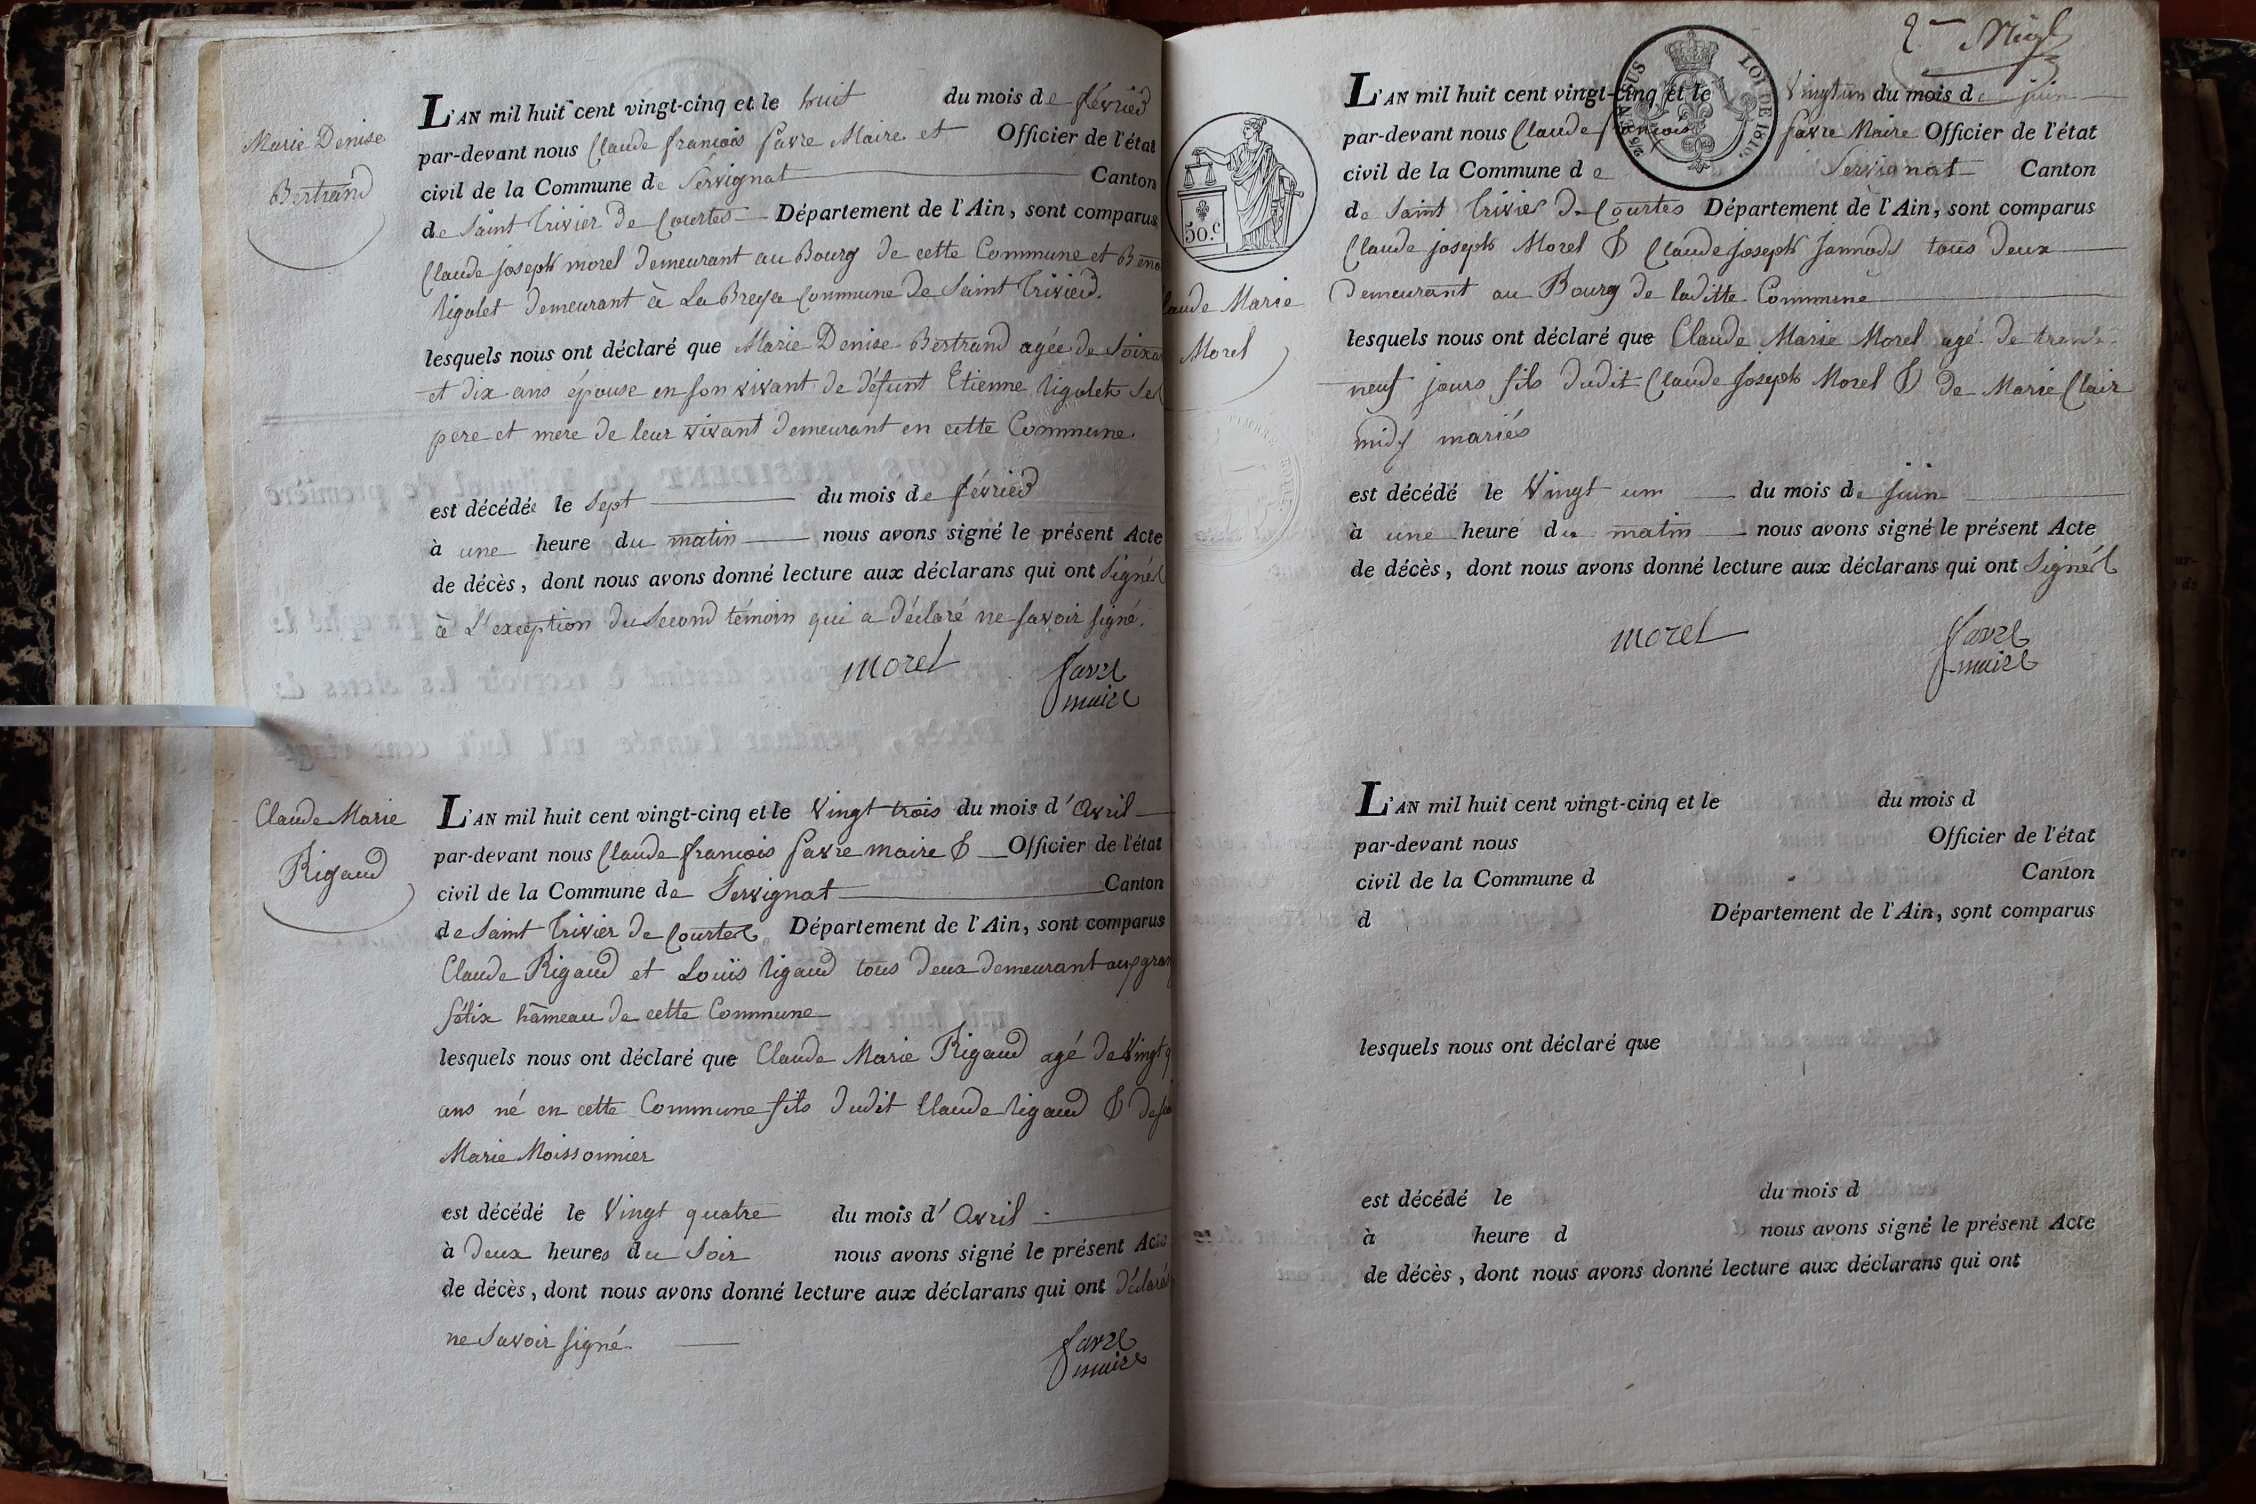 Marie Denise
Bertrand
L'AN mil huit cent vingt-cinq et le huit du mois de février
par-devant nous Claude françois favre Maire et Officier de l'état
civil de la Commune de Servignat Canton
de Saint Trivier De Courtes Département de l'Ain, sont comparus
Claude joseph morel Demeurant au Bourg de cette Commune et
rigolet Demeurant à La Commune De Saint Trivier.
lesquels nous ont déclaré que Marie Denise Bertrand agée de
et dix ans épouse en son vivant de défunt Etienne rigolet
pere et mere de leur vivant Demeurant en cette Commune.
est décédée le sept du mois de février
à une heure du matin nous avons signé le présent Acte
de décès, dont nous avons donné lecture aux déclarans qui ont signés
à L'exception du Second témoin qui a déclaré ne savoir signé.
morel favre
maire
Claude Marie
Rigaud
L'AN mil huit cent vingt-cinq et le Vingt trois du mois d'Avril
par-devant nous Claude françois favre maire & Officier de l'état
civil de la Commune de Servignat Canton
de Saint Trivier de Courtes Département de l'Ain, sont comparus
Claude Rigaud et Louis rigaud tous Deux demeurant aux
félix hameau de cette Commune
lesquels nous ont déclaré que Claude Marie Rigaud agé de
ans né en cette Commune fils dudit Claude rigaud &
Marie Moissonnier
est décédé le Vingt quatre du mois d'Avril
à Deux heures du Soir nous avons signé le présent Acte
de décès, dont nous avons donné lecture aux déclarans qui ont déclaré
ne Savoir signé.
favre
maire
2me
2/5 EN SUS LOI DE 1816.
50.c
L'AN mil huit cent vingt-cinq et le Vingt un du mois de juin
par-devant nous Claude françois favre Maire Officier de l'état
civil de la Commune de Servignat Canton
de Saint Trivier De Courtes Département de l'Ain, sont comparus
Claude joseph Morel & Claude joseph tous deux
Demeurant au Bourg de laditte Commune
Marie
Morel
lesquels nous ont déclaré que Claude Marie Morel agé de trente
neuf jours fils dudit Claude joseph Morel & de Marie Clair
mariés
est décédé le Vingt un du mois de juin
à une heure du matin nous avons signé le présent Acte
de décès, dont nous avons donné lecture aux déclarans qui ont signés
morel favre
maire
L'AN mil huit cent vingt-cinq et le du mois d
par-devant nous Officier de l'état
civil de la Commune d Canton
d Département de l'Ain, sont comparus
lesquels nous ont déclaré que
est décédé le du mois d
à heure d nous avons signé le présent Acte
de décès, dont nous avons donné lecture aux déclarans qui ont